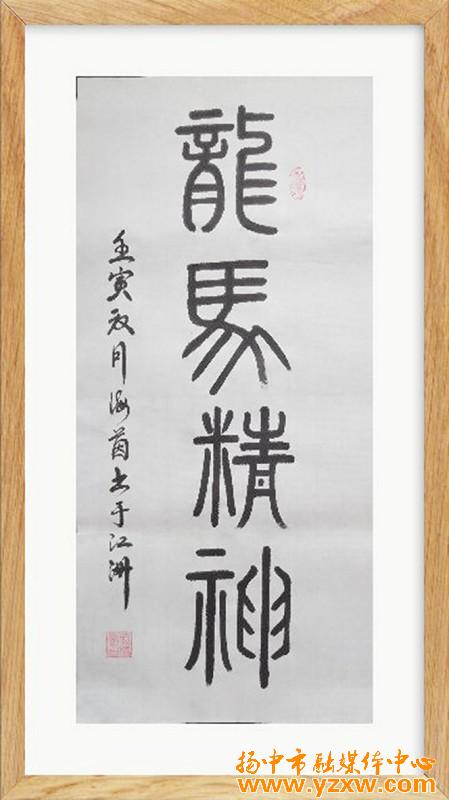 龍馬精神
壬寅夜月海茵书于江洲
扬中市融媒体中心
www.yzxw.com